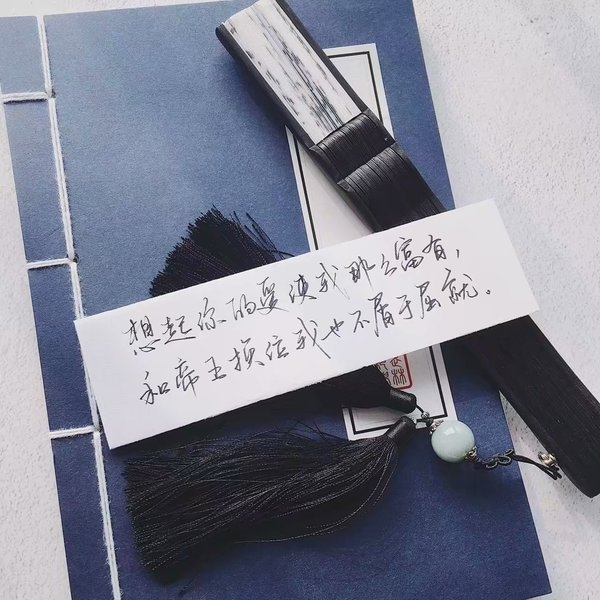 想起你的爱使我那么富有，
和帝王换位我也不屑于屈就。